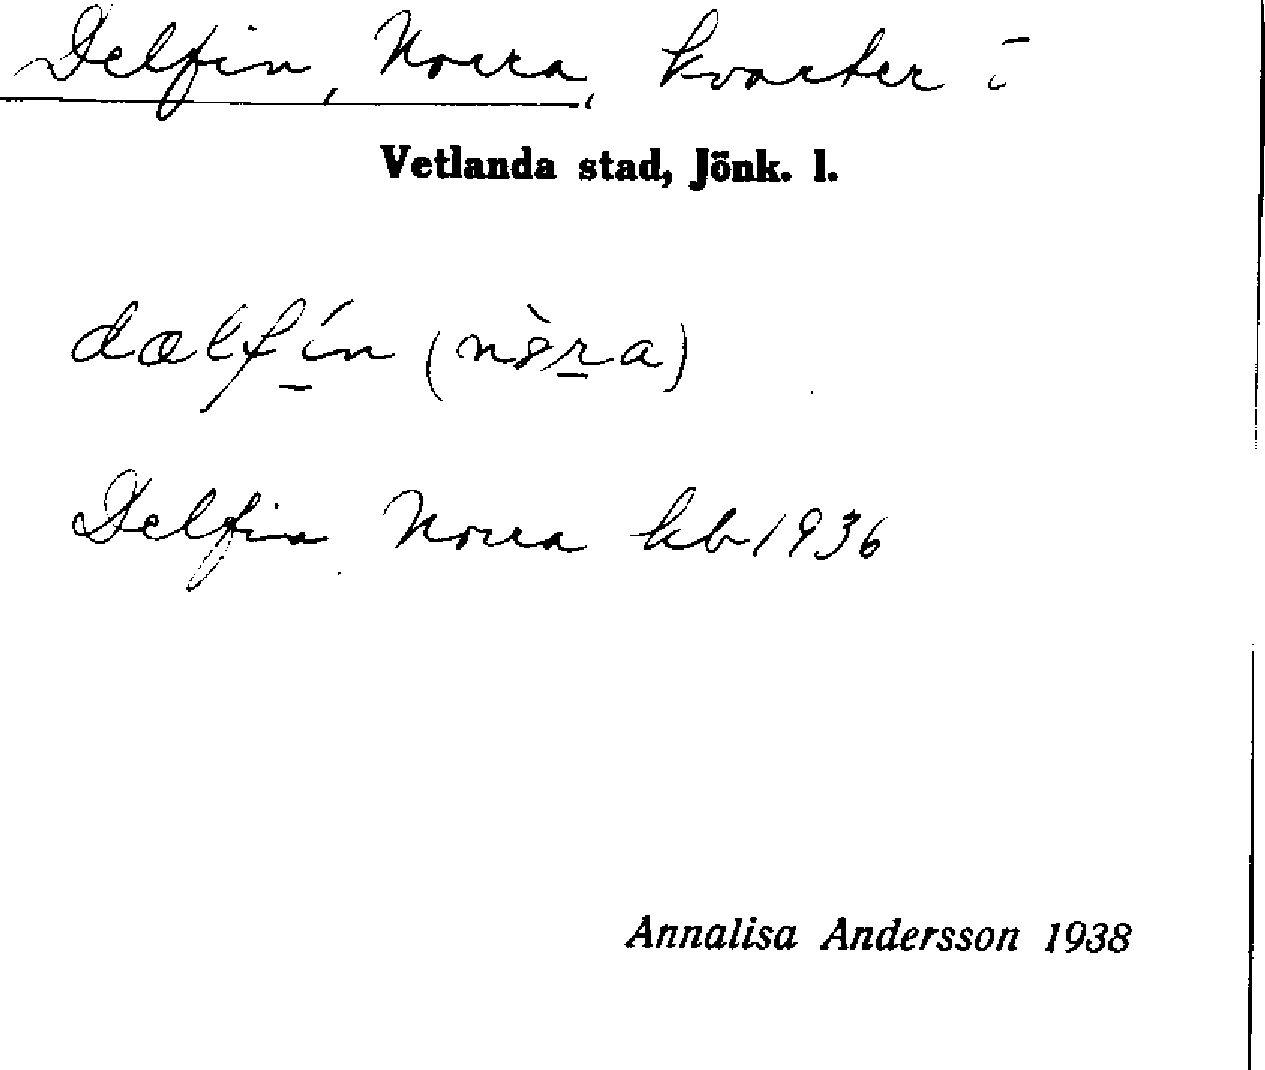 Delfin, Norra, kvarter i
Vetlanda stad, Jönk. l.
dælfín (nòra)
Delfin Norra kb 1936
Annalisa Andersson 1938